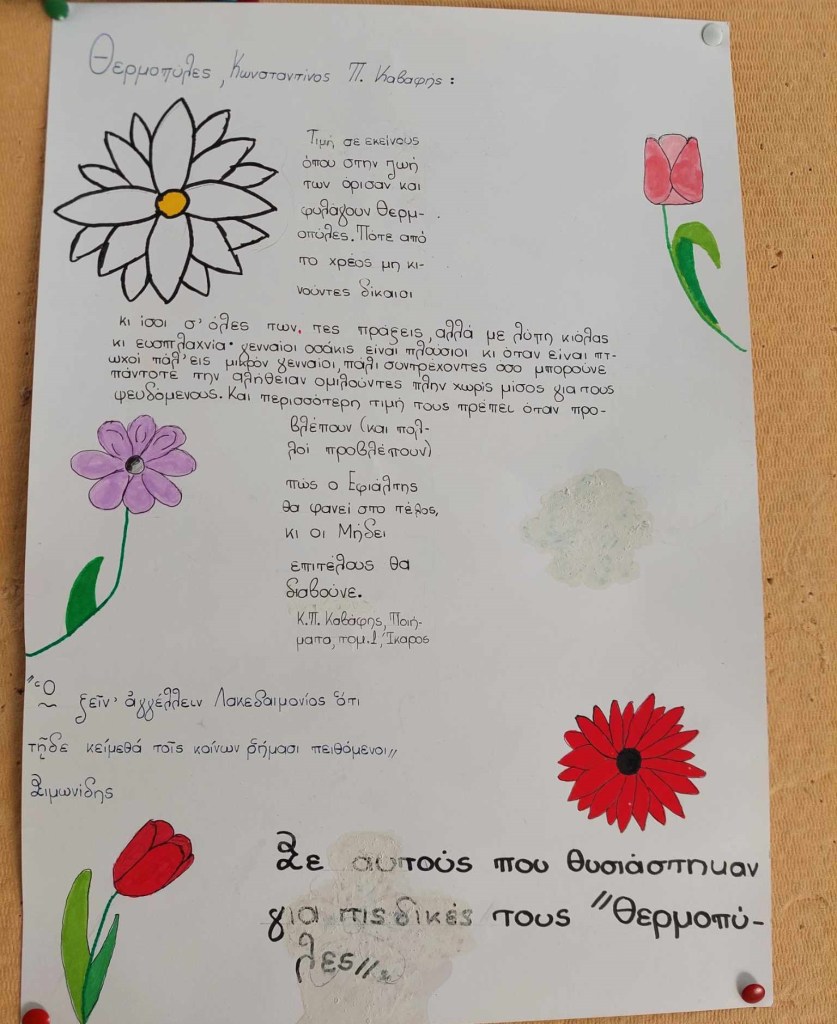 Θερμοπύλες, Κωνσταντίνος Π. Καβάφης:
Τιμή σε εκείνους
όπου στην ζωή
των όρισαν και
φυλάγουν Θερμ-
οπύλες. Ποτέ από
το χρέος μη κι-
νούντες δίκαιοι
κι ίσοι σ' όλες των, τες πράξεις, αλλά με λύπη κιόλας
κι ευσπλαχνία· γενναίοι οσάκις είναι πλούσιοι κι όταν είναι πτ-
ωχοί πάλ' εις μικρόν γενναίοι, πάλι συντρέχοντες όσο μπορούνε
πάντοτε την αλήθειαν ομιλούντες πλην χωρίς μίσος για τους
ψευδόμενους. Και περισσότερη τιμή τους πρέπει όταν προ-
βλέπουν (και πολ-
λοί προβλέπουν)
πώς ο Εφιάλτης
θα φανεί στο τέλος,
κι οι Μήδει
επιτέλους θα
διαβούνε.
Κ.Π. Καβάφης, Ποιή-
ματα, τομ.1, Ίκαρος
"Ὦ
ξεῖν' ἀγγέλλειν Λακεδαιμονίος ὅτι
τῇδε κείμεθά τοῖς κοίνων ῥήμασι πειθόμενοι"
Σιμωνίδης
Σε αυτούς που θυσιάστηκαν
για τις δικές τους "Θερμοπύ-
λες"